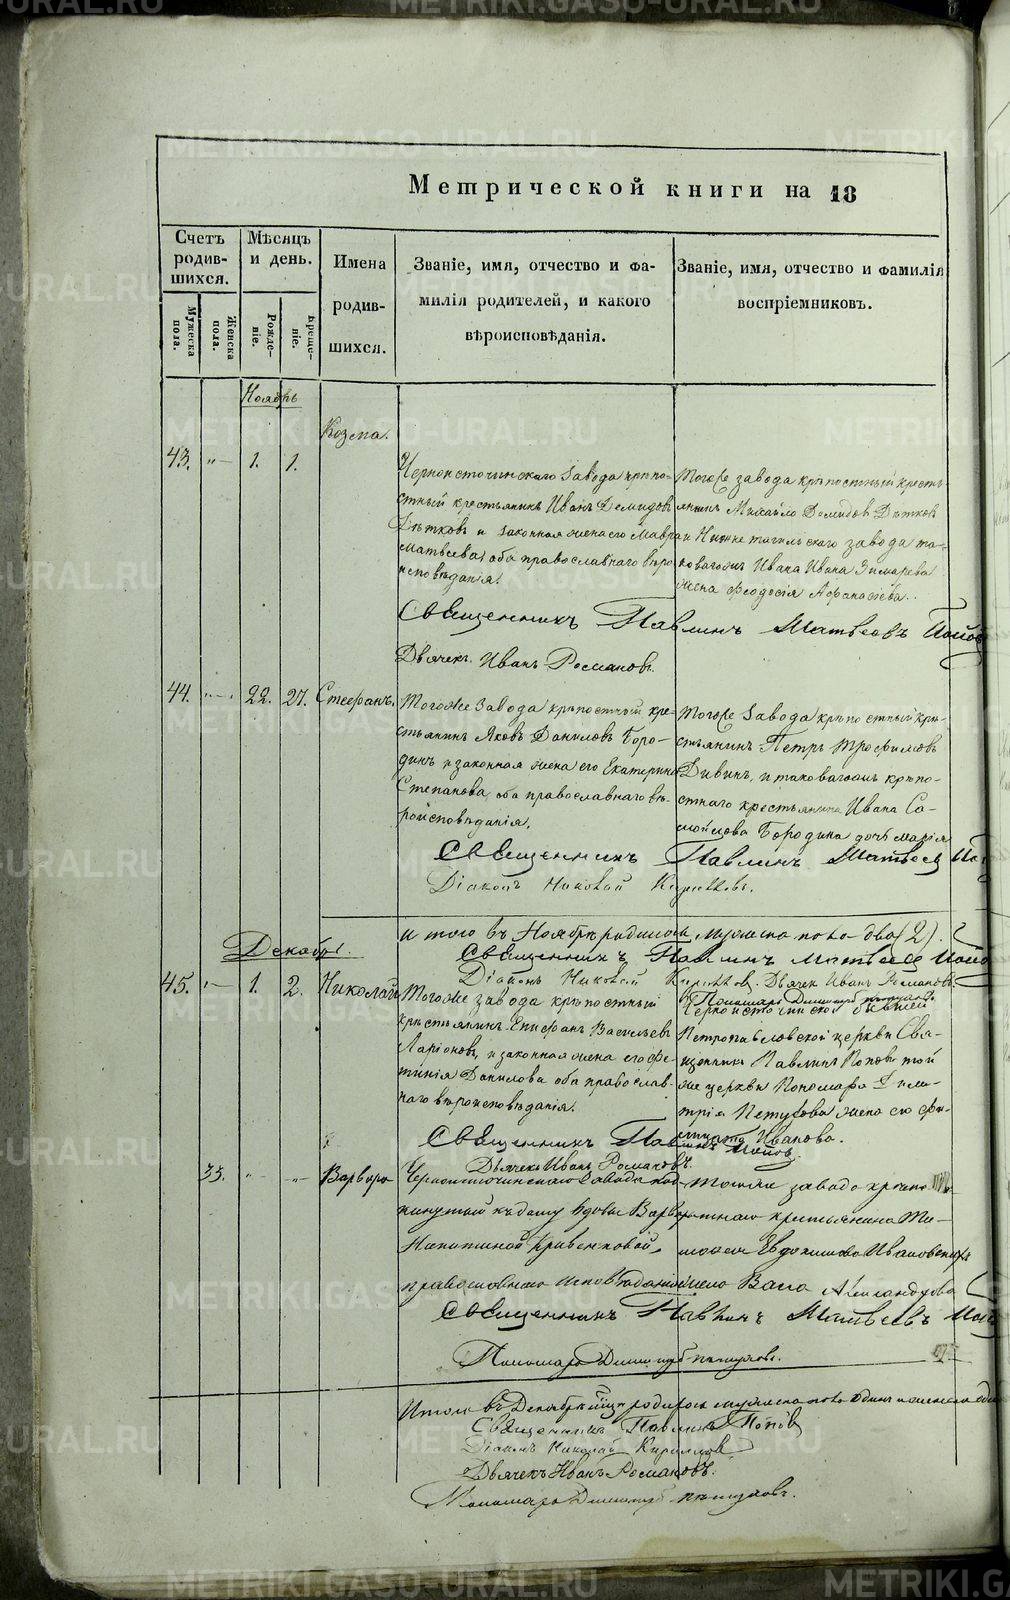 Метрической книги на 18
Счетъ родив-шихся.
Мѣсяцъ и день.
Имена родив-шихся.
Званіе, имя, отчество и фа-
милія родителей, и какого
вѣроисповѣданія.
Званіе, имя, отчество и фамилія
воспріемниковъ.
Мужеска пола.
Женска пола.
Рожде-ніе.
Креще-ніе.
Ноябрь
Козма.
43. „— 1. 1.
Черноисточинскаго Завода крѣпо-
стный крестьянинъ Иванъ Демидовъ
Дѣтковъ и законная жена его Мавра
Матвеева, оба православнаго вѣро
исповѣданія.
Тогоже завода крѣпостный кресть-
янинъ Михайло Демидов Дѣтков
и Нижнетагильскаго завода та-
коваго жъ Ивана Ивана Зимарева
жена Феодосія Афанасіева.
Священникъ Павлинъ Матвеевъ Попов
Дьячекъ Иванъ Романовъ.
44. „— 22. 27. Стефанъ.
Тогоже Завода крѣпостный кре-
стьянинъ Яковъ Даниловъ Боро-
динъ и законная жена его Екатерина
Степанова, оба православнаго вѣ-
роисповѣданія.
Тогоже Завода крѣпостный кре-
стьянинъ Петръ Трофимовъ
Дивинъ, и таковагожъ крѣпо-
стнаго крестьянина Ивана Са-
мойлова Бородина дочь Марія
Священникъ Павлинъ Матвеев
Діаконъ Николай Кирилловъ.
Итого въ Ноябрѣ родилось мужска пола два (2).
Священникъ Павлинъ Матвеев Попов
Діаконъ Николай Кирилловъ. Дьячек Иван Романовъ.
Пономарь Димитрій Петуховъ
Декабрь.
45. „— 1. 2. Николай
Тогоже завода крѣпостный
крестьянинъ Епифанъ Васильевъ
Ларіонов, и законная жена его Фе-
тинія Данилова оба православ-
наго вѣроисповѣданія.
Черноисточинской бывшей
Петропавловской церкви Свя-
щенникъ Павлинъ Поповъ той
же церкви Пономаря Дими-
трія Петухова жена
Иванова.
Священникъ Павлинъ Попов
Дьячекъ Иванъ Романовъ.
35. „— „— Варвара
Черноисточинскаго Завода под-
кинутый къ дому вдовы Варвары
Никитиной Кривенковой,
православнаго исповѣданія
тогоже завода крѣпо
стнаго крестьянина Ти-
мофея Евдокимова Ивановскихъ
жена Васса Александрова
Священникъ Павлинъ Матвеевъ Попов
Пономарь Димитрій Петуховъ.
Итого въ Декабрѣ родилось мужска пола одинъ и женска
Священникъ Павлинъ Попов
Діаконъ Николай Кириллов
Дьячекъ Иванъ Романовъ.
Пономарь Димитрій Петуховъ.
METRIKI.GASO-URAL.RU